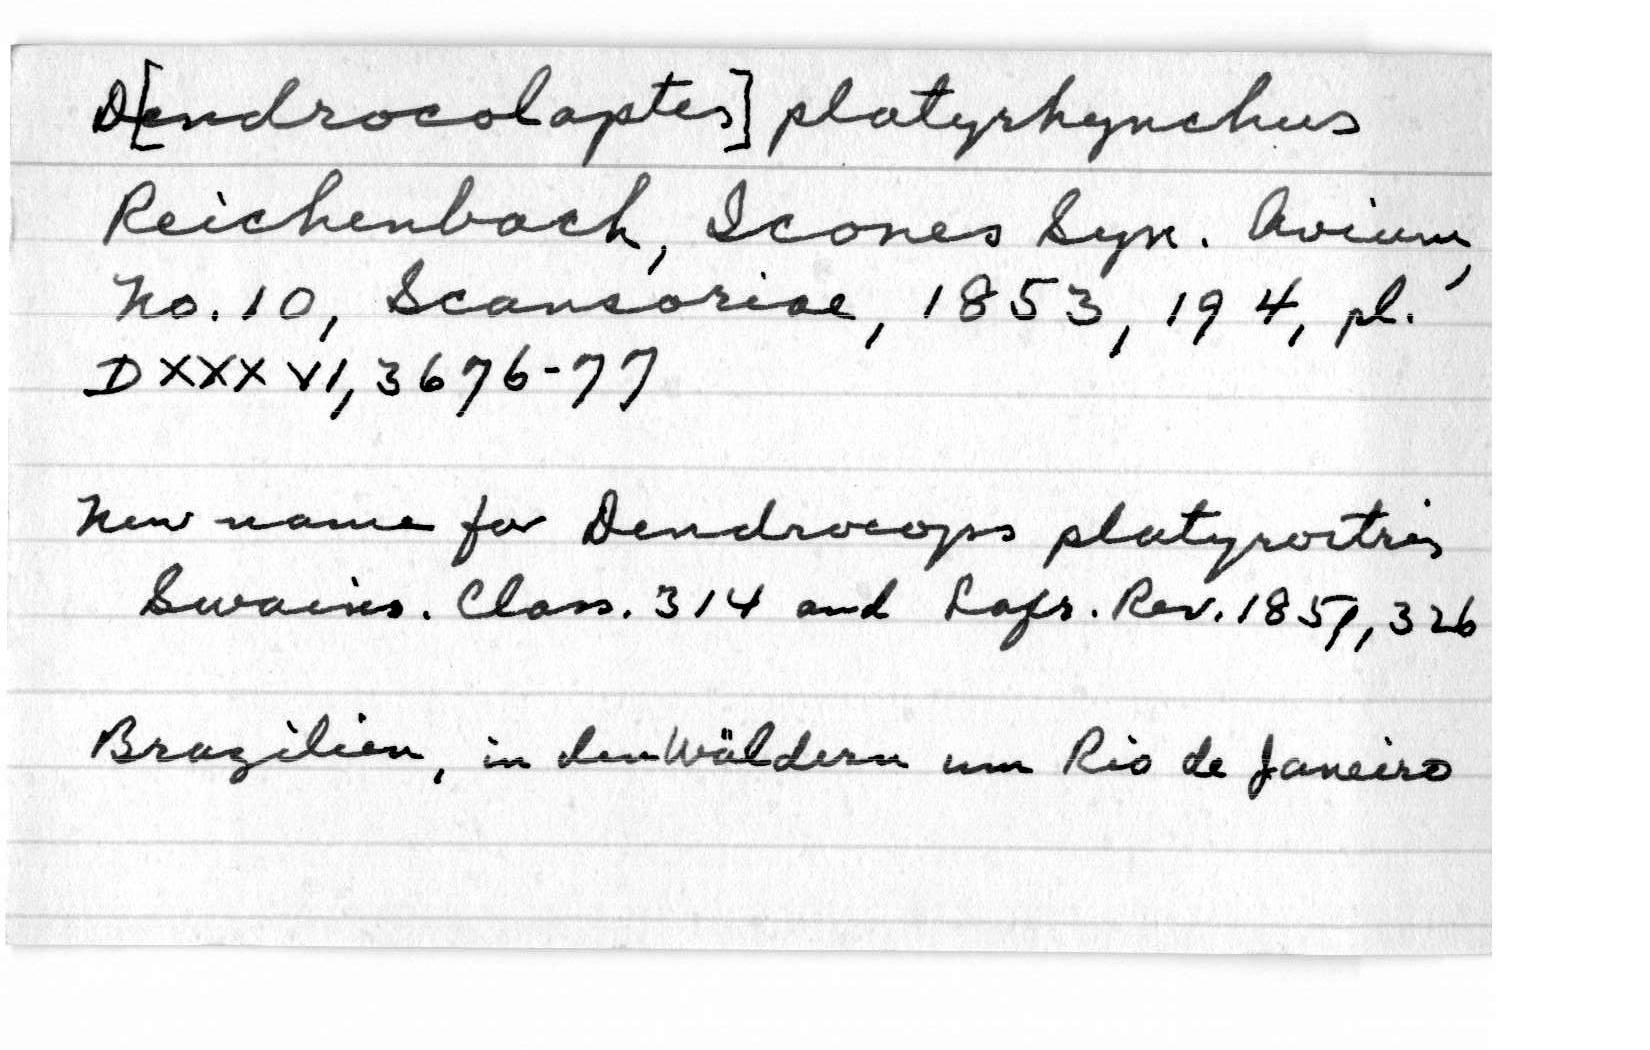 D[endrocolaptes] platyrhynchus
Reichenbach, Icones Syn. Avium,
No. 10, Scansoriae, 1853, 194, pl.
DXXXVI, 3676-77
New name for Dendrocops platyrostris
Swains. Class. 314 and Lafr. Rev. 1851, 326
Brazilien, in den Wäldern um Rio de Janeiro